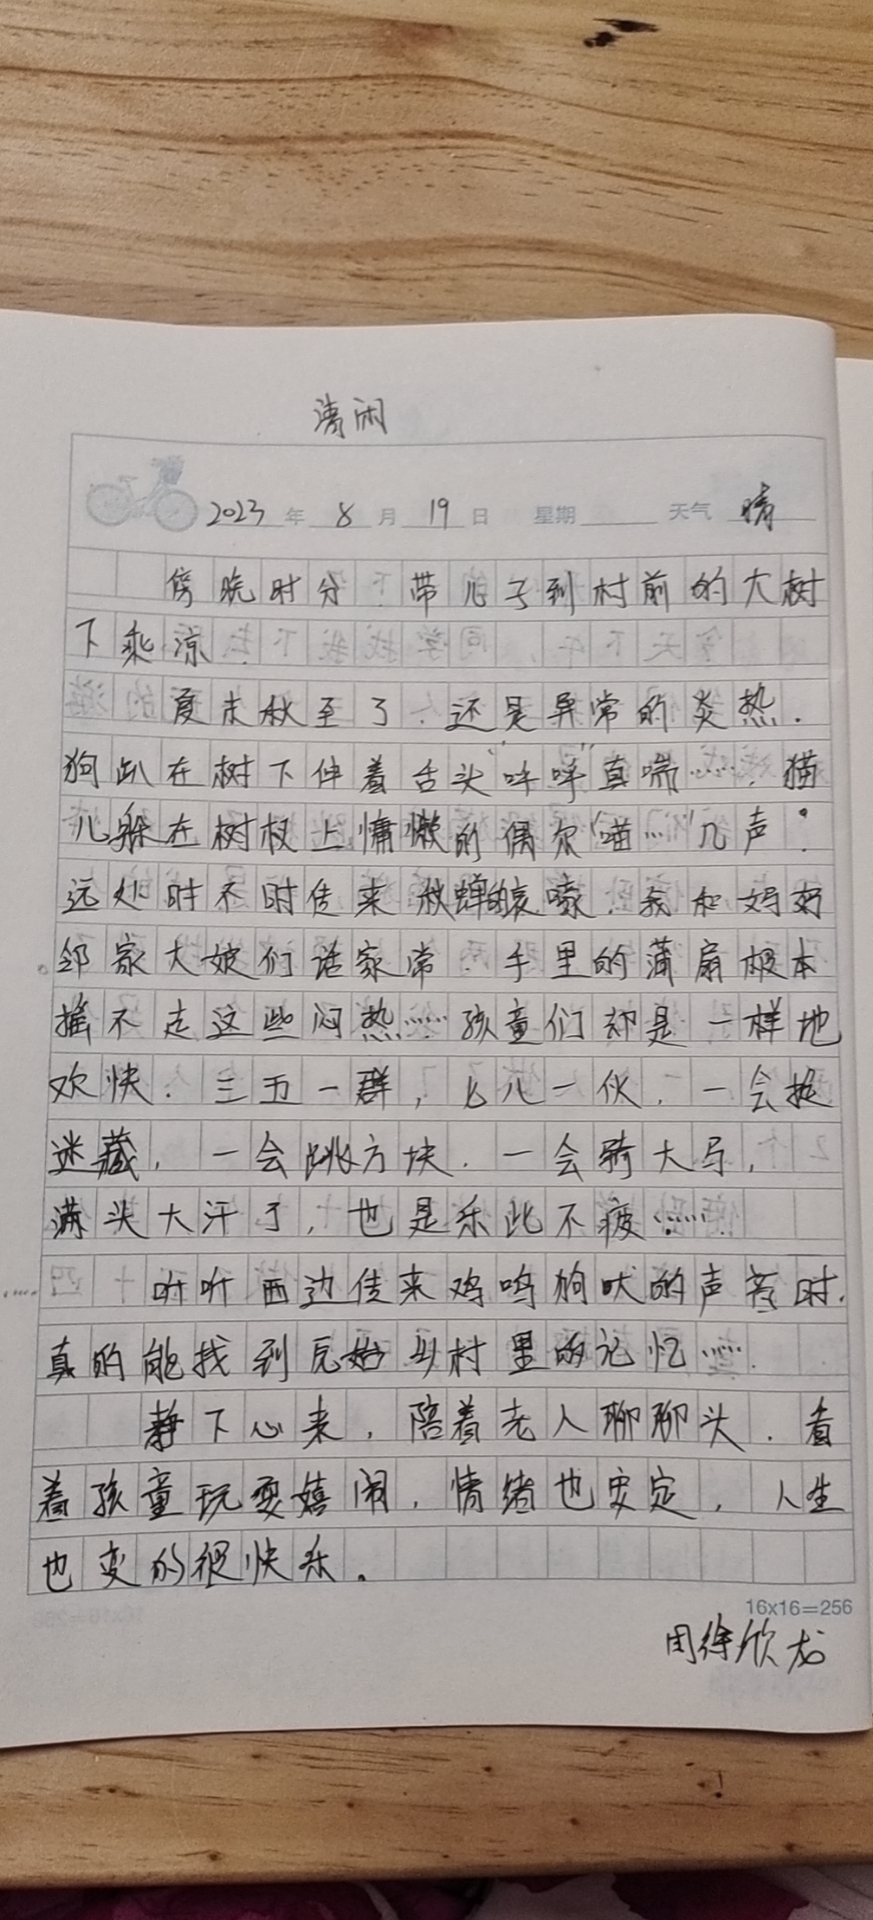 清闲
2023年 8月 19日 星期 天气 晴
傍晚时分.带儿子到村前的大树
下乘凉.
夏末秋至了.还是异常的炎热.
狗趴在树下伸着舌头"呼呼"直喘…….猫
儿躲在树杈上慵懒的偶尔"喵…"几声.
远处时不时传来秋蝉的哀嚎.我和妈妈
邻家大娘们话家常.手里的蒲扇根本
摇不走这些闷热……孩童们却是一样地
欢快.三五一群,七八一伙.一会捉
迷藏,一会跳方块.一会骑大马,
满头大汗了,也是乐此不疲……
听听西边传来鸡鸣狗吠的声音时.
真的能找到原始乡村里的记忆…….
静下心来,陪着老人聊聊头.看
着孩童玩耍嬉闹,情绪也安定,人生
也变的很快乐。
16x16=256